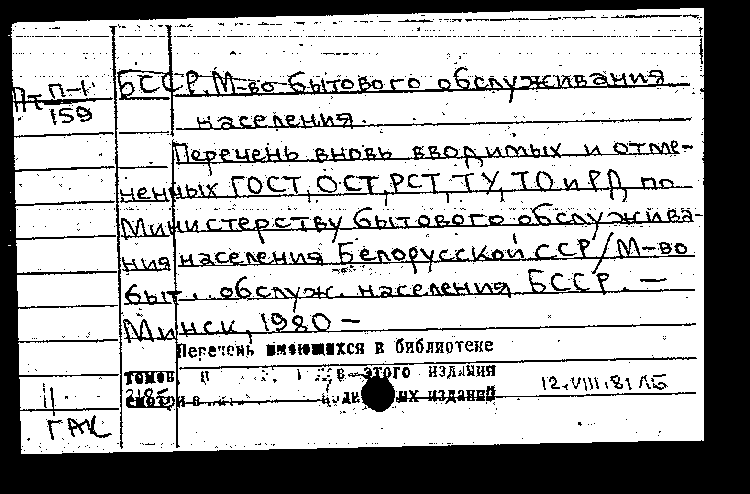 Пт П-1
159
БССР. М-во бытового обслуживания
населения.
Перечень вновь вводимых и отме-
ненных ГОСТ, ОСТ, РСТ, ТУ, ТО и РД по
Министерству бытового обслужива-
ния населения Белорусской ССР / М-во
быт. обслуж. населения БССР. —
Минск, 1980 —
Перечень имеющихся в библиотеке
томов и в этого издания
смотри в изданий
12.VIII.81 ЛБ
11
ГАК